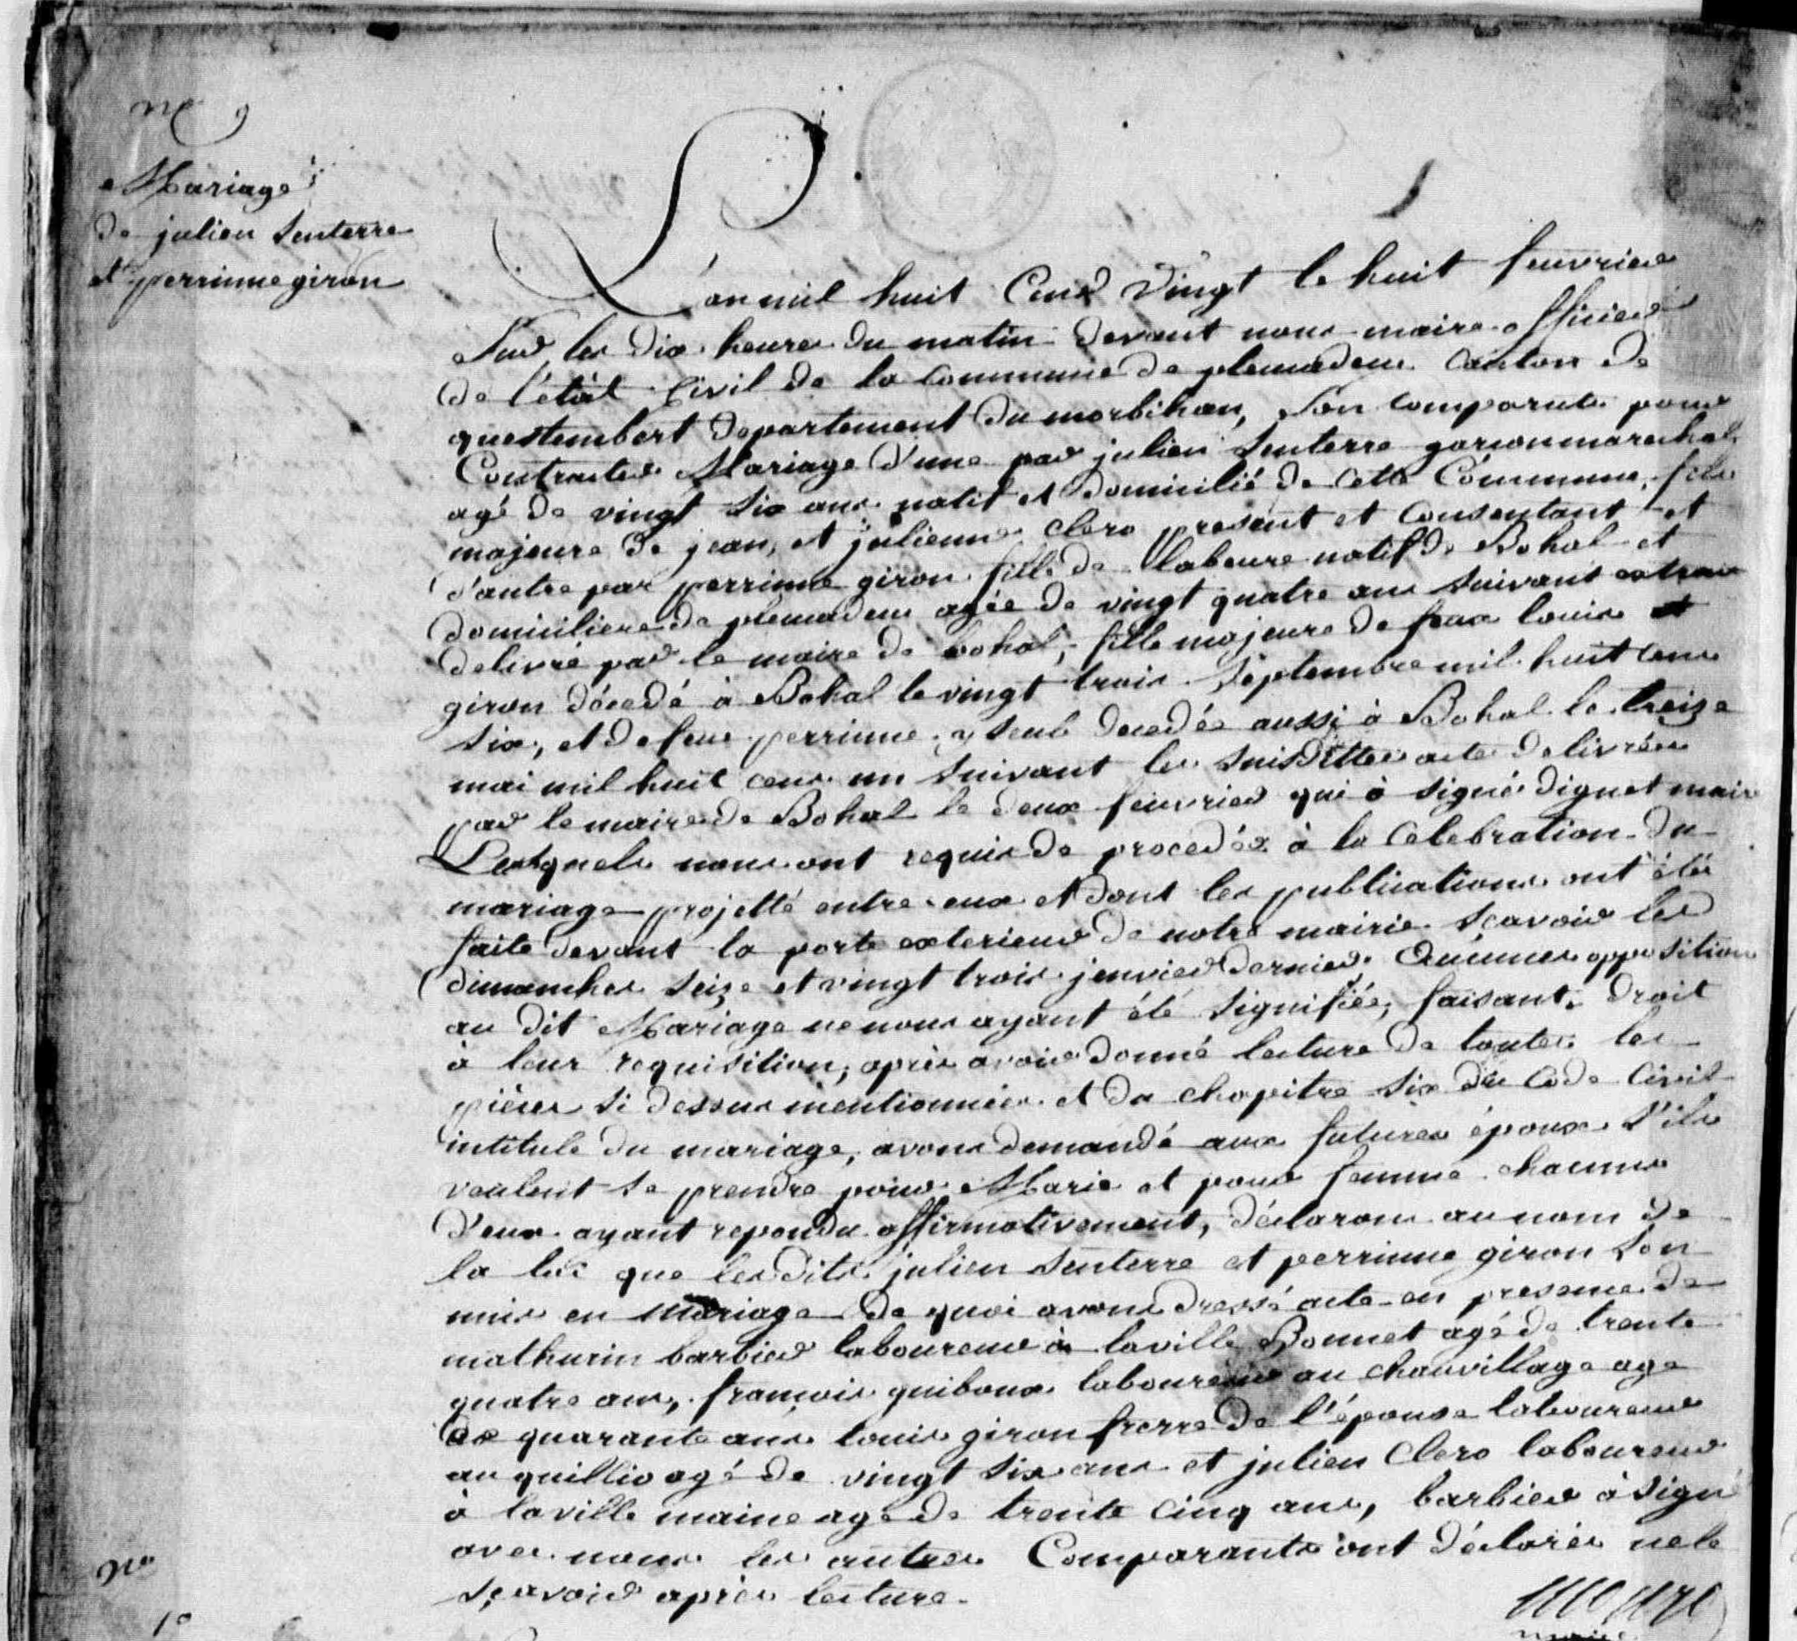 N° 9
Mariage
de julien Senterre
et perrinne giron
L'an mil huit Cens Vingt le huit feuvrier
Sur les dix heures du matin devant nous maire officier
de l'état Civil de la Commune de plumadeuc Canton de
questembert departement du morbihan, Son comparute pour
Contracter Mariage d'une par julien Senterre garson marechal
agé de vingt six ans natif et domicilié de cette Commune, fils
majeure de jean, et julienne clero present et Consentant et
d'autre par perrinne giron fille de laboure natif de Bohal et
domiciliere de plumadeuc agée de vingt quatre ans suivant extrai
delivré par le maire de bohal, fille majeure de feux louis
giron décedé à Bohal le vingt trois Septembre mil huit cens
six, et de feue perrinne decedée aussi à Bohal le treize
mai mil huit cens un suivant les susditte acte delivrées
par le maire de Bohal le deux feuvrier qui à signé diguet maire
Lesquels nous ont requis de proceder à la Celebration du
mariage projetté entre eux et dont les publications ont étés
faite devant la porte exterieur de notre mairie sçavoir les
dimanches seize et vingt trois jenvier dernier. Aucunes opposition
au dit Mariage ne nous ayant été signifiée, faisant droit
à leur requisition, après avoir donné lecture de toutes les
pièces si dessus mentionnées et du chapitre six du Code Civil
intitule du mariage, avons demandé aux futures époux s'ils
veulent se prendre pour Marie et pour femme chacuns
d'eux ayant repondu affirmativement, déclarons au nom de
la loi que les dits julien Senterre et perrinne giron son
unis en mariage de quoi avons dressé acte en presence de
mathurin barbier laboureur à laville Bonnet agé de trente
quatre ans, francois guiboux laboureur au chauvillage age
de quarante ans louis giron frerre de l'épouse laboureur
au quillio agé de vingt six ans et julien Clero laboureur
à laville maine age de trente cinq ans, barbier à signé
avec nous les autres Comparants ont déclarés ne le
sçavoir après lecture.
N°
1°
maire